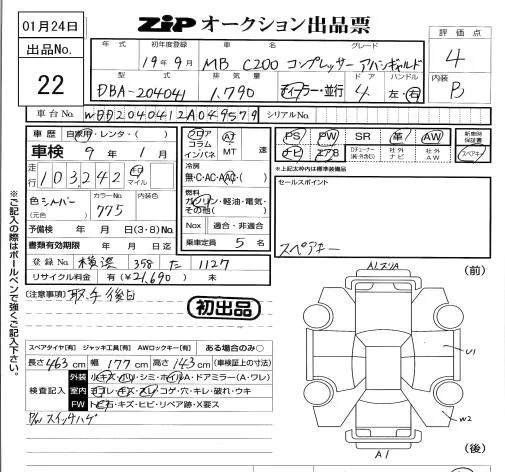 01月24日
ZIPオークション出品票
出品No.
22
年式 初年度登録 車名 グレード
19年9月 MB C200 コンプレッサー アバンギャルド
評価点
4
型式 排気量 ドア ハンドル
DBA-204041 1.790 ディーラー・並行 4 左・右
内装
B
車台No. WDD2040412A049579 シリアルNo.
車歴 自家用・レンタ・( )
車検 9年1月
走行 103,242 キロ マイル
色 シルバー (元色) カラーNo. 775 内装色
予備検 年 月 日(3・8)No.
書類有効期限 年 月 日迄
登録No. 横浜 358 た 1127
リサイクル料金 有(¥21,690) 未
フロア コラム インパネ AT MT 速
冷房
無・C・AC・AAC・( )
燃料
ガソリン・軽油・電気・その他( )
Nox 適合・非適合
乗車定員 5名
PS PW SR 革 AW
ナビ エアB Dチューナー(純・外含む) 社外ナビ 社外AW
新車時保証書
スペアキー
*上記太枠内は標準装備品
セールスポイント
スペアキー
※ご記入の際はボールペンで強くご記入下さい。
[注意事項] 取-午後日
初出品
スペアタイヤ[有] ジャッキ工具[有] AWロックキー[有] ある場合のみ○
長さ463cm 幅177cm 高さ143cm (車検証上の寸法)
検査記入
外装 小キズ・小U・シミ・ホイルA・ドアミラー(A・ワレ)
室内 ヨゴレ・キズ・スレ・コゲ・穴・キレ・破れ・ウキ
FW トビ石・キズ・ヒビ・リペア跡・X要ス
P/Wスイッチハゲ
(前)
U1
W2
A1
(後)